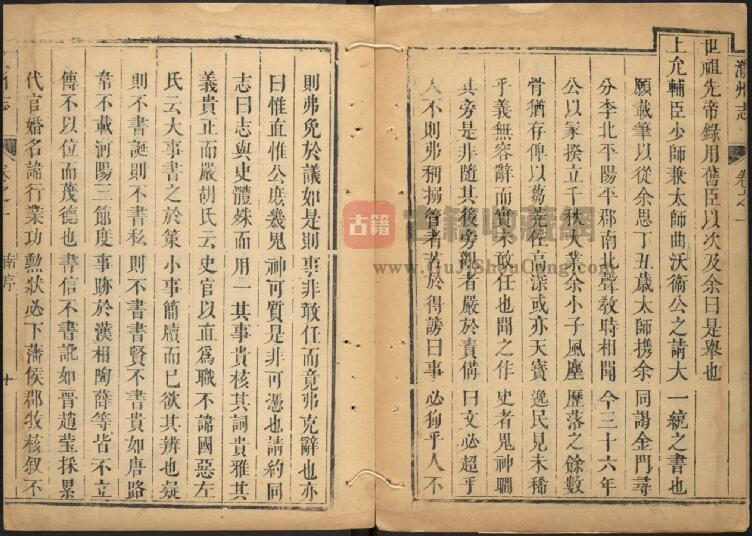 濟州志
卷之一
世祖先帝錄用舊臣以次及余曰是舉也
上允輔臣少師兼太師曲沃衛公之請大一統之書也
願載筆以從余思丁丑歲太師携余同謁金門尋
分李北平陽平郡南北聲教時相聞今三十六年
公以家揆立千秋大業余小子風塵歷落之餘數
骨猶存俾以蒭蕘任高深或亦天寶逸民見未稀
乎義無容辭而實未敢任也聞之作史者鬼神瞷
其旁是非隨其後旁觀者嚴於責備曰文必超乎
人不則弗稱搦管者苦於得謗曰事必狥乎人不
則弗免於議如是則事非敢任而竟弗克辭也亦
曰惟直惟公庶幾鬼神可質是非可憑也請約同
志曰志與史體殊而用一其事貴核其詞貴雅其
義貴正而嚴胡氏云史官以直爲職不諱國惡左
氏云大事書之於策小事簡牘而已欲其辨也疑
則不書誕則不書私則不書書賢不書貴如唐路
韋不載河陽三節度事跡於漢相陶薛等皆不立
傳不以位而茂德也書信不書訛如晋趙瑩採累
代官婚名諱行業功勲狀必下藩侯郡牧核叙不
州志
卷之一
舊序
十
古籍
古籍收藏網
GuJiShouCang.com